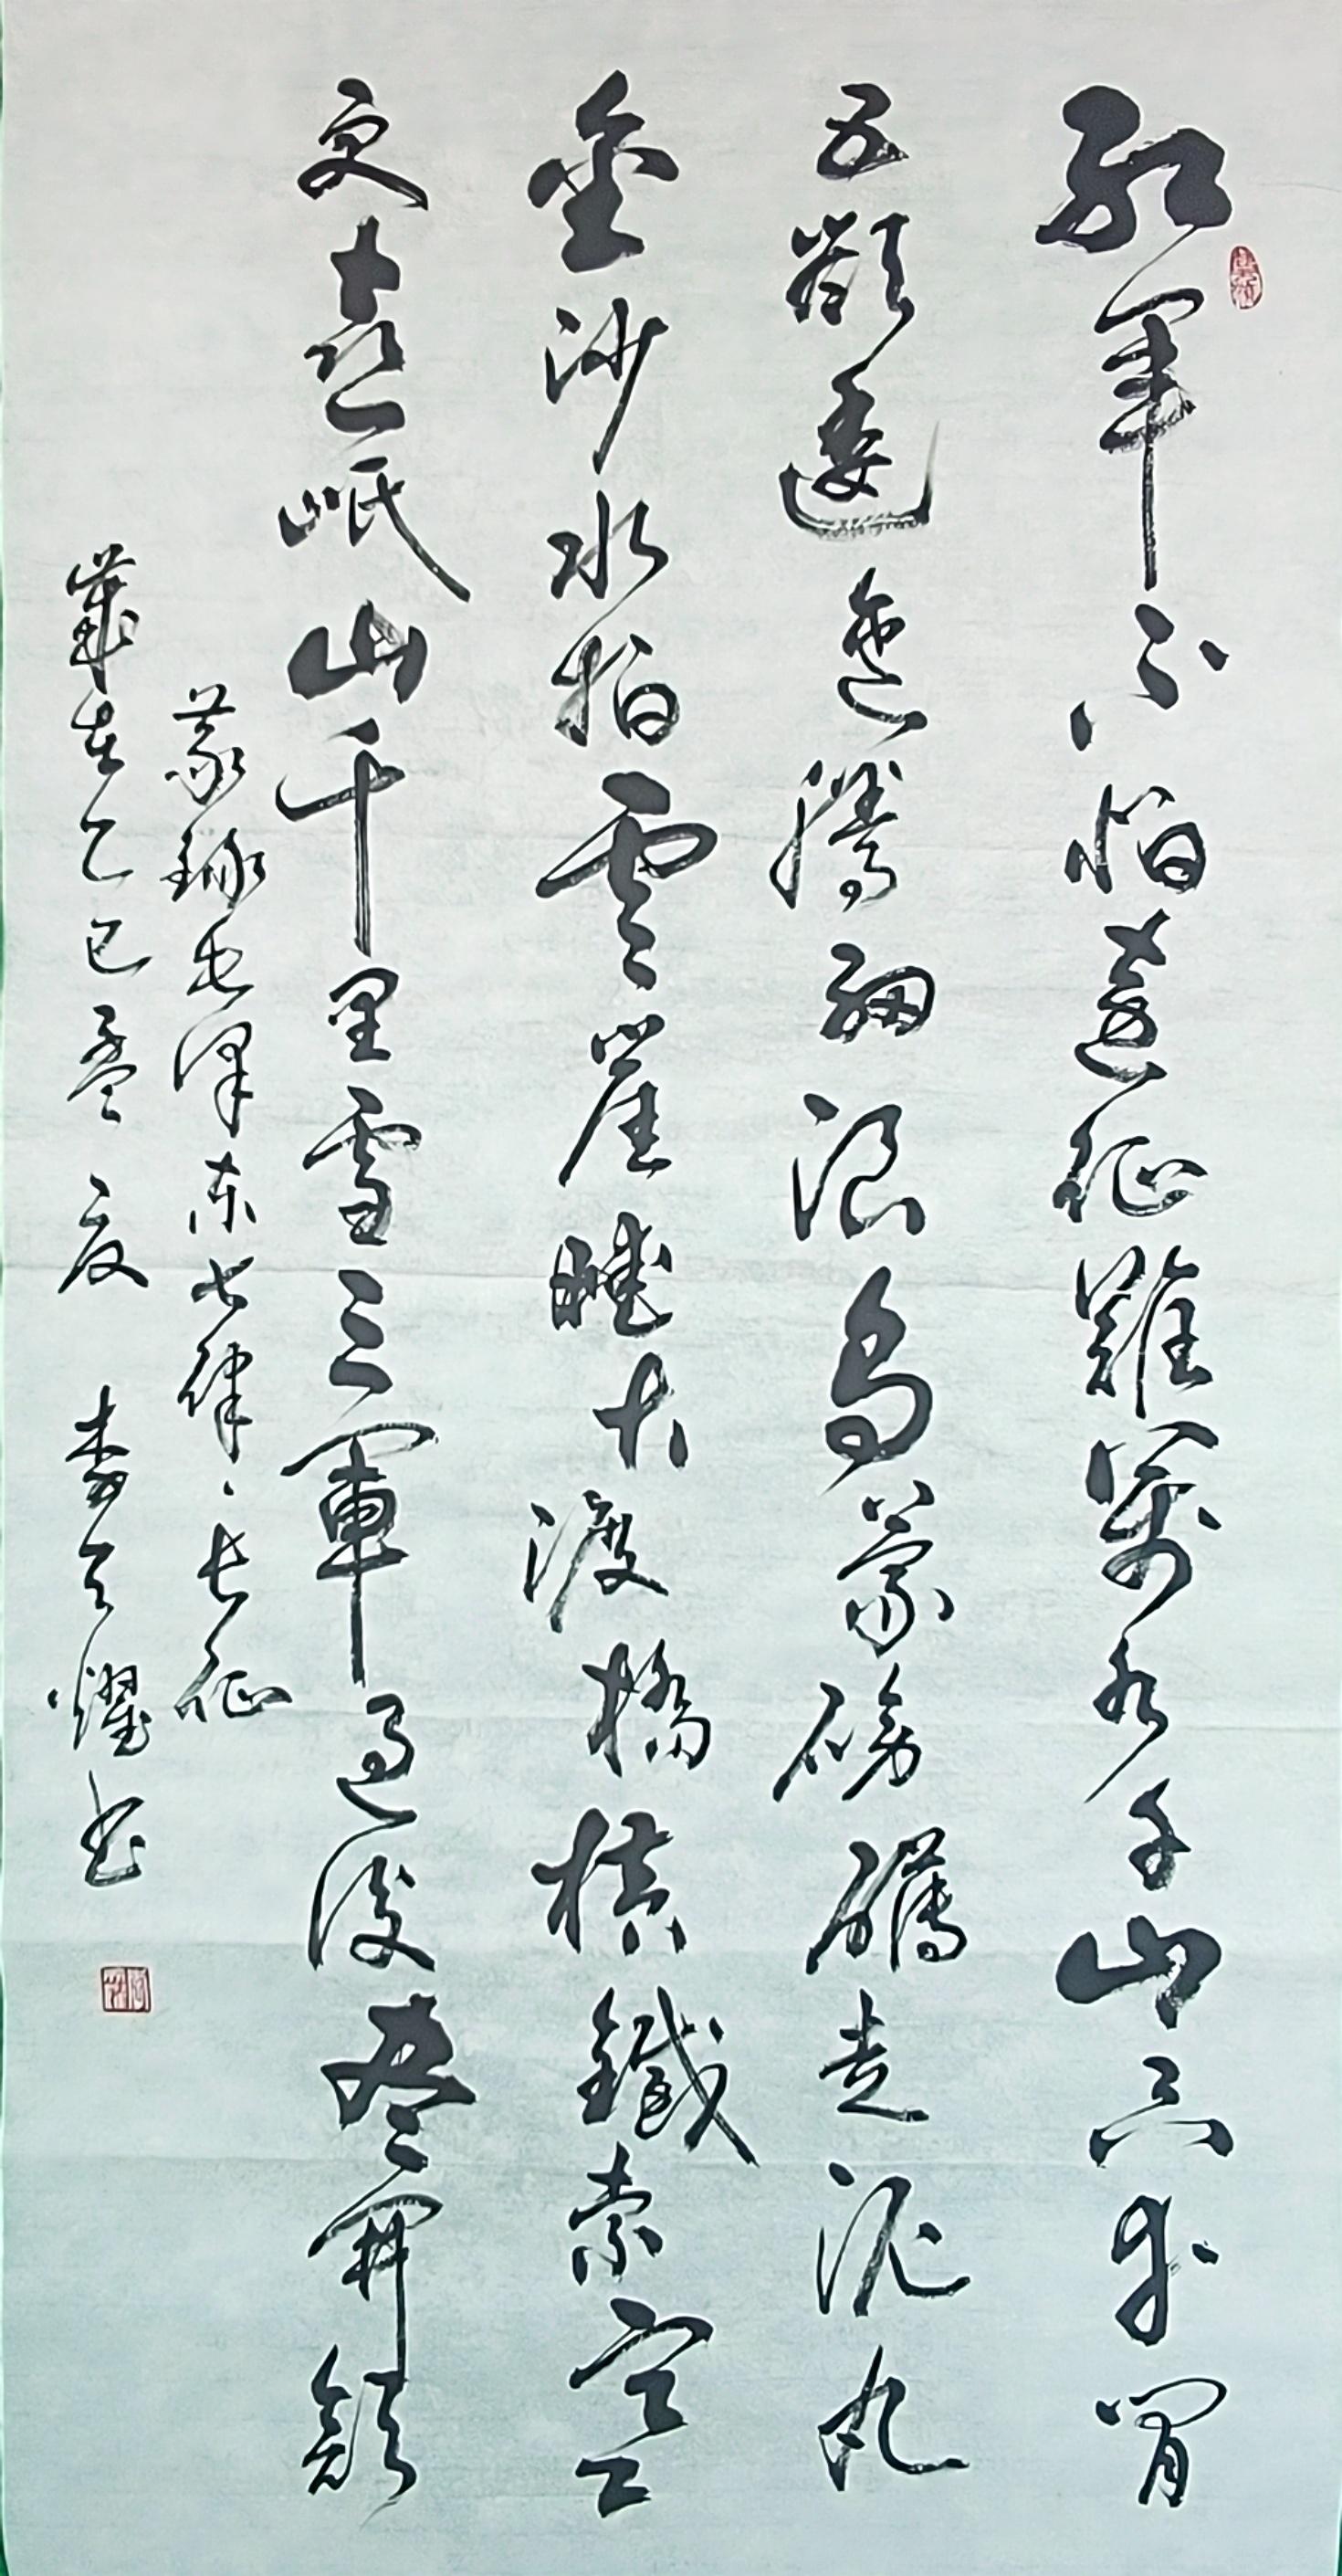 紅軍不怕遠征難萬水千山只等閒
五嶺逶迤騰細浪烏蒙磅礴走泥丸
金沙水拍雲崖暖大渡橋橫鐵索寒
更喜岷山千里雪三軍過後盡開顏
錄毛澤东七律·長征
歲在乙巳孟夏 李燿书